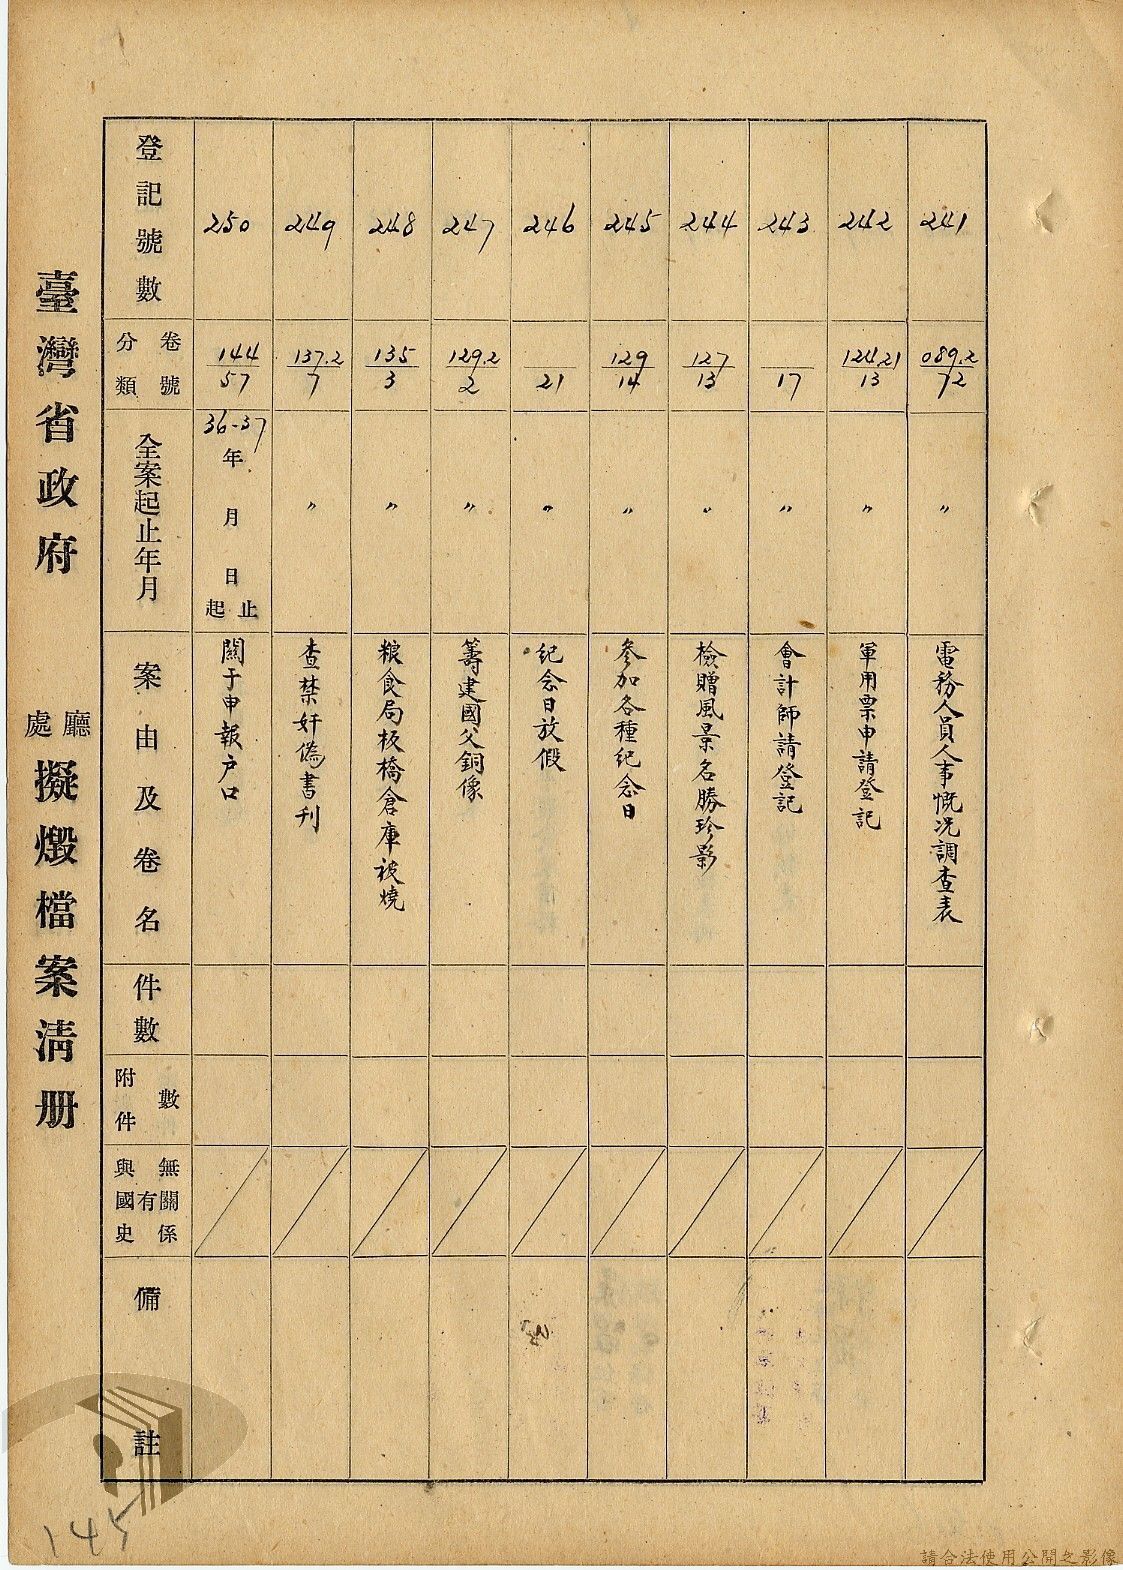 臺灣省政府 廳處 擬燬檔案清册
登記號數 卷號分類 全案起止年月 案由及卷名 件數 附件數 與國史有無關係 備註
250 144/57 36-37年 月 日起止 關于申報户口
249 137.2/7 〃 查禁奸偽書刊
248 135/3 〃 粮食局板橋倉庫被燒
247 129.2/2 〃 籌建國父銅像
246 21 〃 紀念日放假
245 129/14 〃 參加各種紀念日
244 127/13 〃 檢贈風景名勝珍影
243 17 〃 會計師請登記
242 124.21/13 〃 軍用票申請登記
241 089.2/72 〃 電務人員人事慨况調查表
145
請合法使用公開之影像